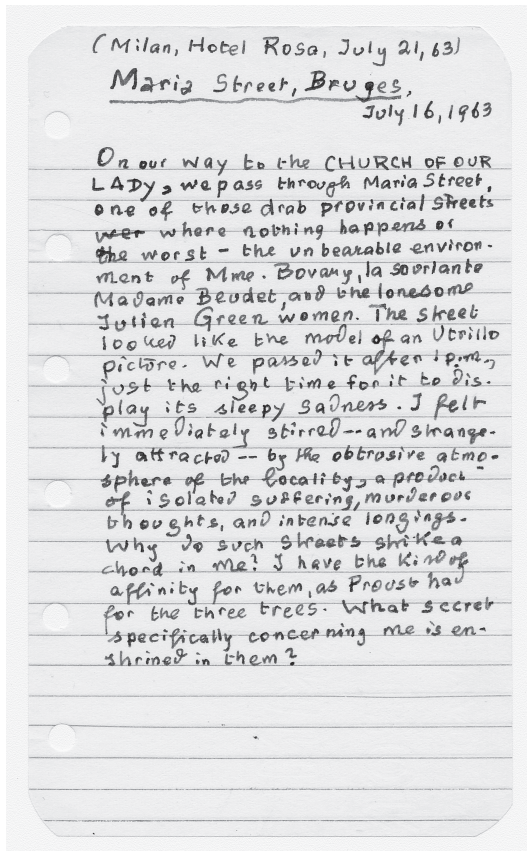 (Milan, Hotel Rosa, July 21, 63)
Maria Street, Bruges,
July 16, 1963
On our way to the CHURCH OF OUR
LADY, we pass through Maria Street,
one of those drab provincial streets
wer where nothing happens or
the worst – the unbearable environ-
ment of Mme. Bovary, la souriante
Madame Beudet, and the lonesome
Julien Green women. The street
looked like the model of an Utrillo
picture. We passed it after 1 p.m.,
just the right time for it to dis-
play its sleepy sadness. I felt
immediately stirred -- and strange-
ly attracted -- by the obtrusive atmo-
sphere of the locality, a product
of isolated suffering, murderous
thoughts, and intense longings.
Why do such streets strike a
chord in me? I have the kind of
affinity for them, as Proust had
for the three trees. What secret
specifically concerning me is en-
shrined in them?